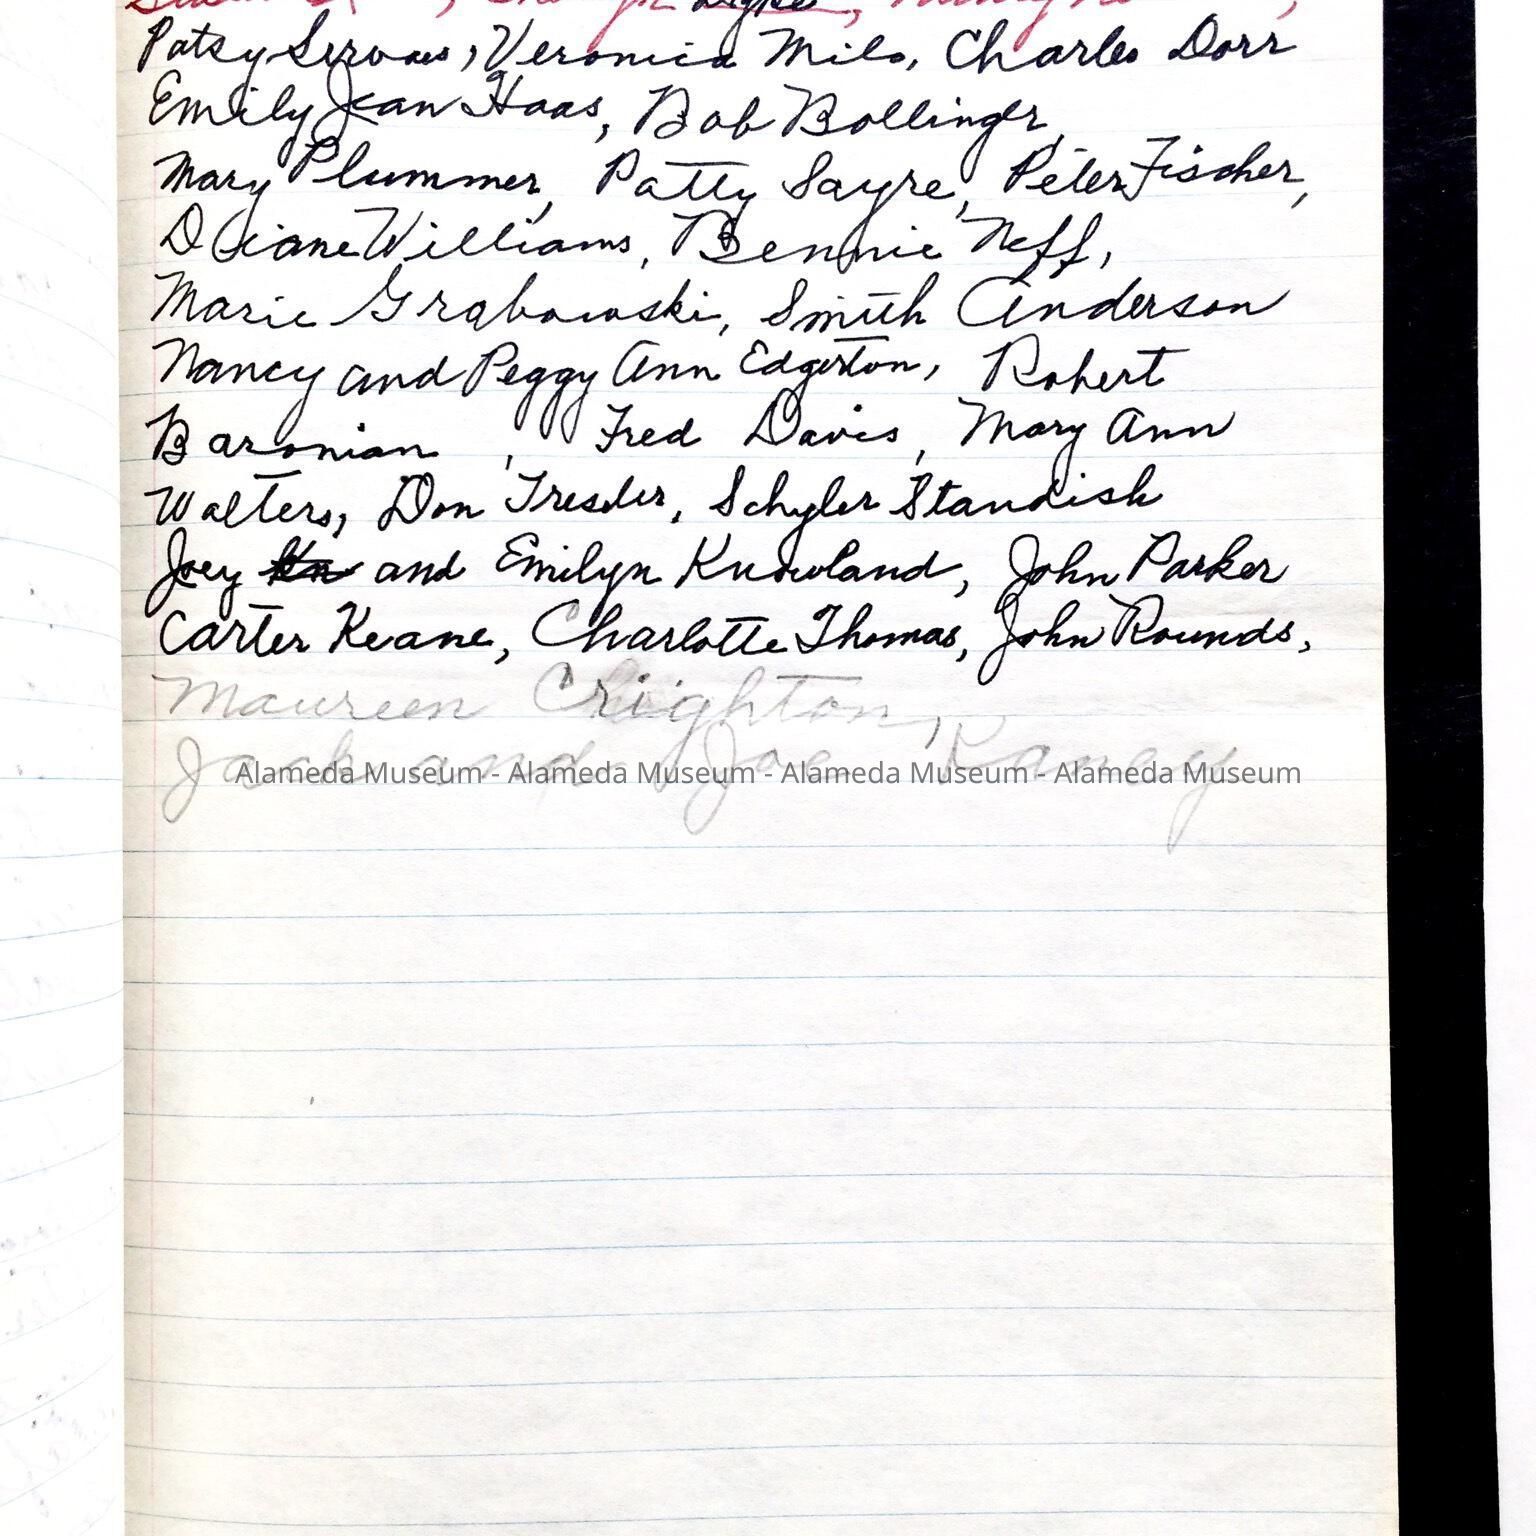 Patsy Servaes, Veronica Milo, Charles Dorr
Emily Jean Haas, Bob Bollinger,
Mary Plummer, Patty Sayre, Peter Fischer,
Diane Williams, Bennie Neff,
Marie Grabowski, Smith Anderson
Nancy and Peggy Ann Edgerton, Robert
Baronian, Fred Davis, Mary Ann
Walters, Don Tresder, Schyler Standish
Joey and Emilyn Knowland, John Parker
Carter Keane, Charlotte Thomas, John Rounds,
Maureen Crighton,
Jack and Joe Raney
Alameda Museum - Alameda Museum - Alameda Museum - Alameda Museum